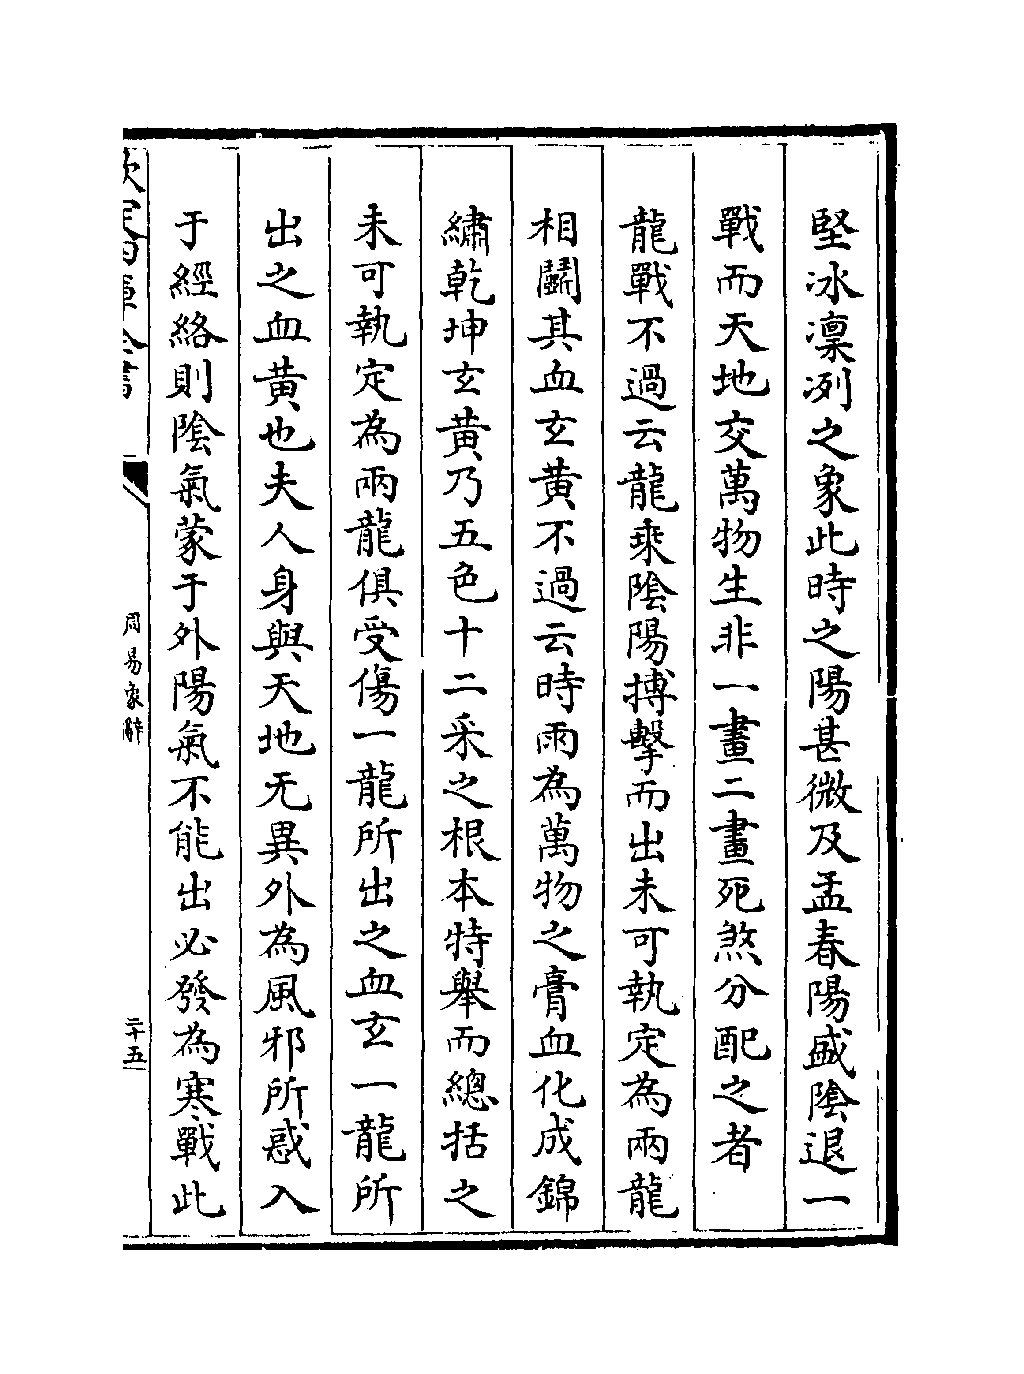 堅冰凛冽之象此時之陽甚微及孟春陽盛陰退一
戰而天地交萬物生非一畫二畫死煞分配之者
龍戰不過云龍乘陰陽搏擊而出未可執定為兩龍
相鬭其血玄黄不過云時雨為萬物之膏血化成錦
繡乾坤玄黄乃五色十二采之根本特舉而總括之
未可執定為兩龍俱受傷一龍所出之血玄一龍所
出之血黄也夫人身與天地无異外為風邪所惑入
于經絡則陰氣蒙于外陽氣不能出必發為寒戰此
欽定四庫全書
周易象辭
二十五